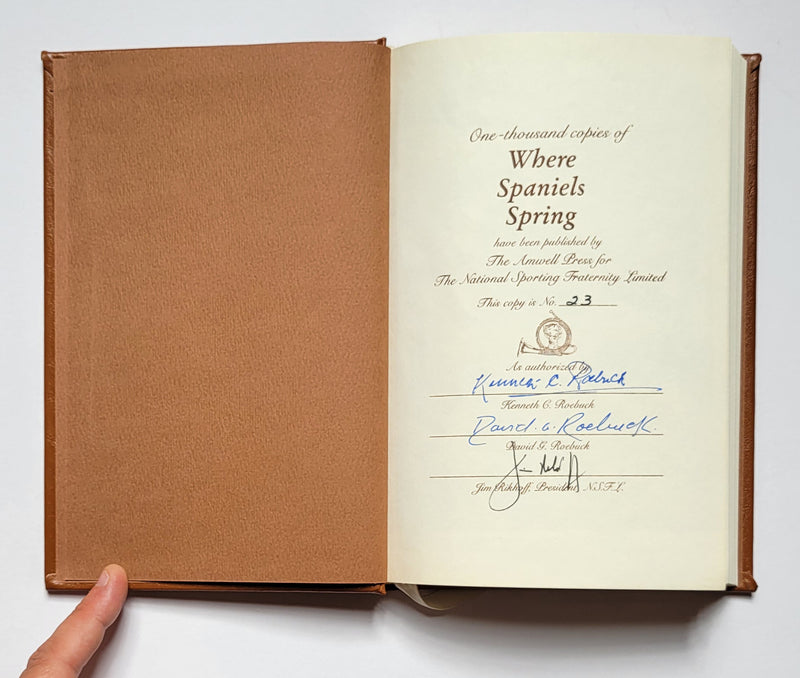 One-thousand copies of
Where
Spaniels
Spring
have been published by
The Amwell Press for
The National Sporting Fraternity Limited
This copy is No. 23
As authorized by
Kenneth C. Roebuck
Kenneth C. Roebuck
David G. Roebuck
David G. Roebuck
Jim Rikhoff, President, N.S.F.L.